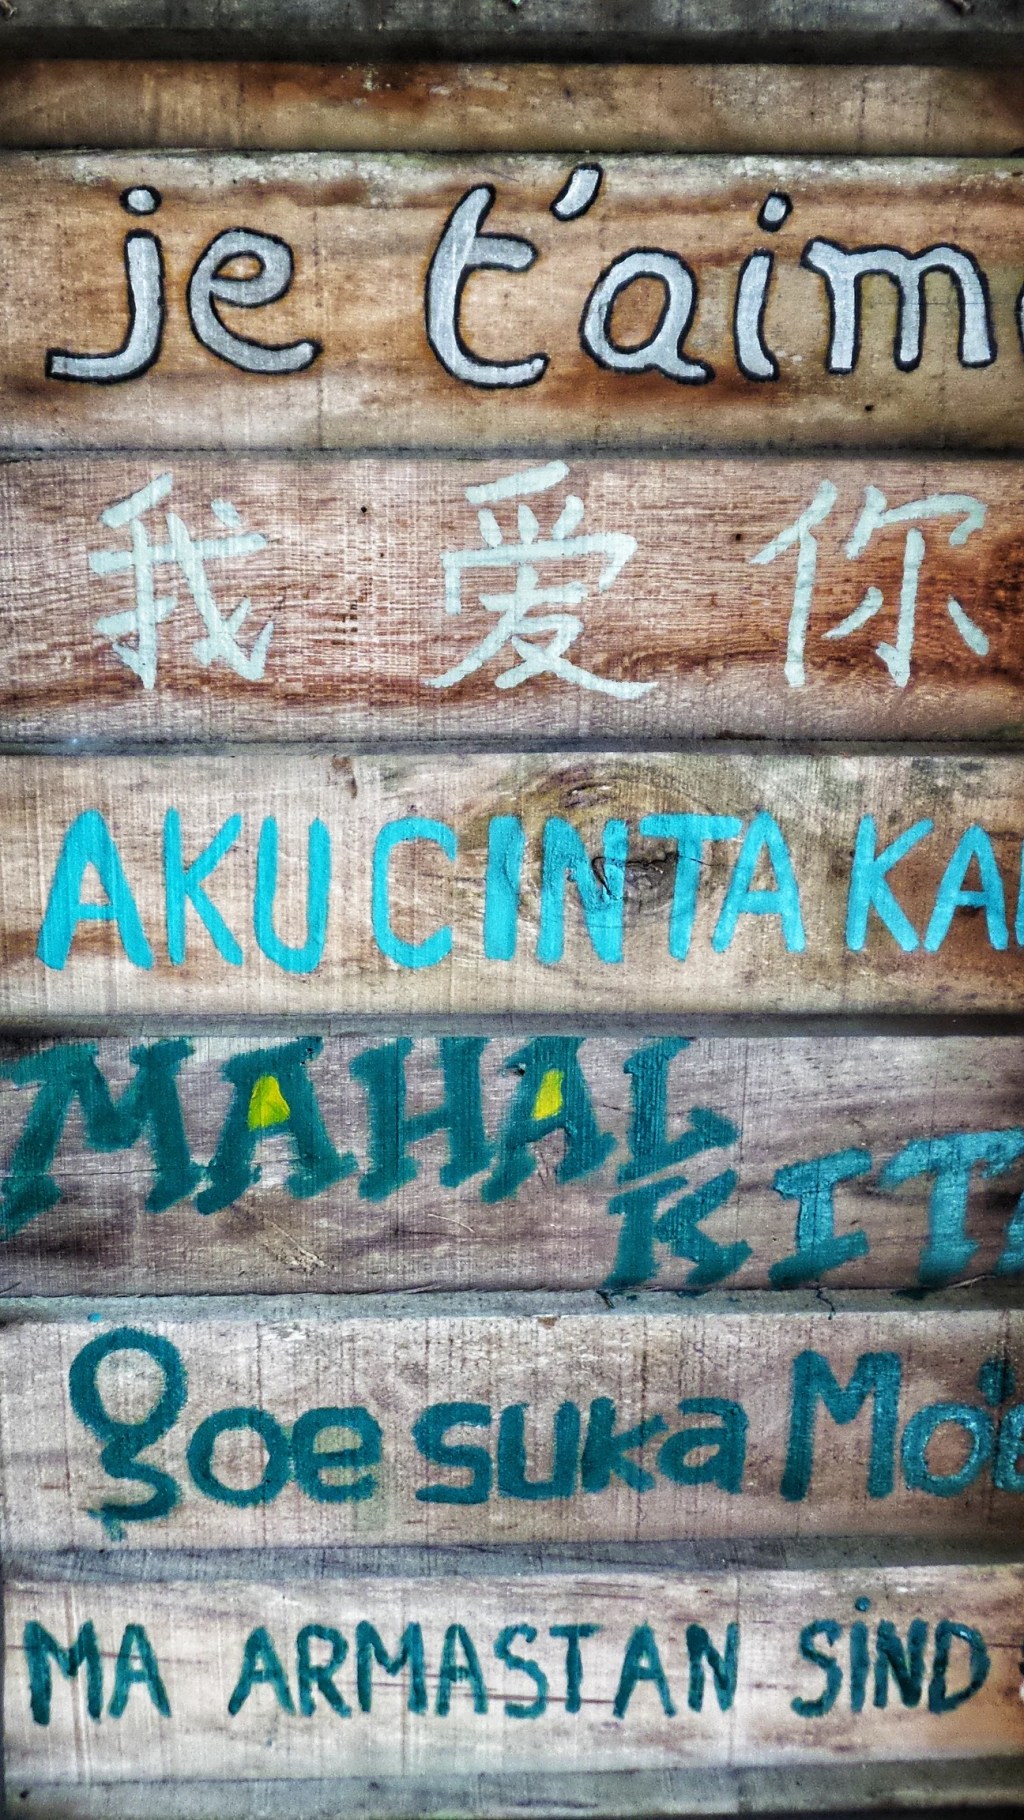 je t'aim
我 爱 你
AKU CINTA KA
MAHAL
KITA
goe suka Mo'e
MA ARMASTAN SiND